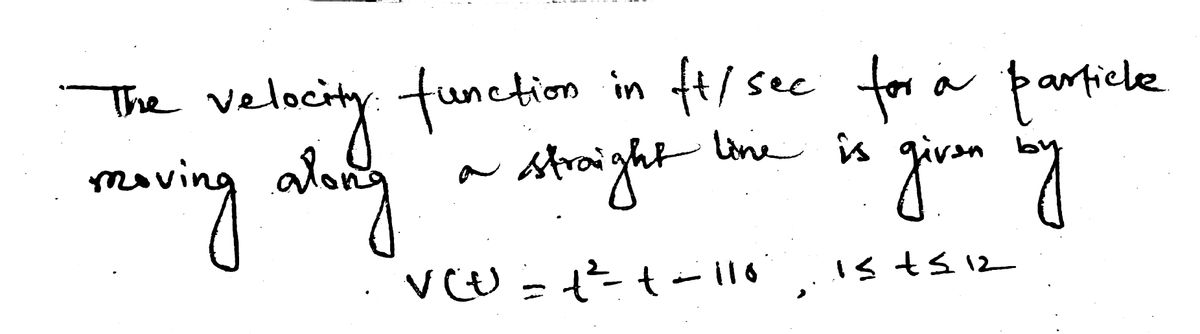 The velocity function in ft/sec for a particle
moving along a straight line is given by
v(t) = t² - t - 110, 1 ≤ t ≤ 12